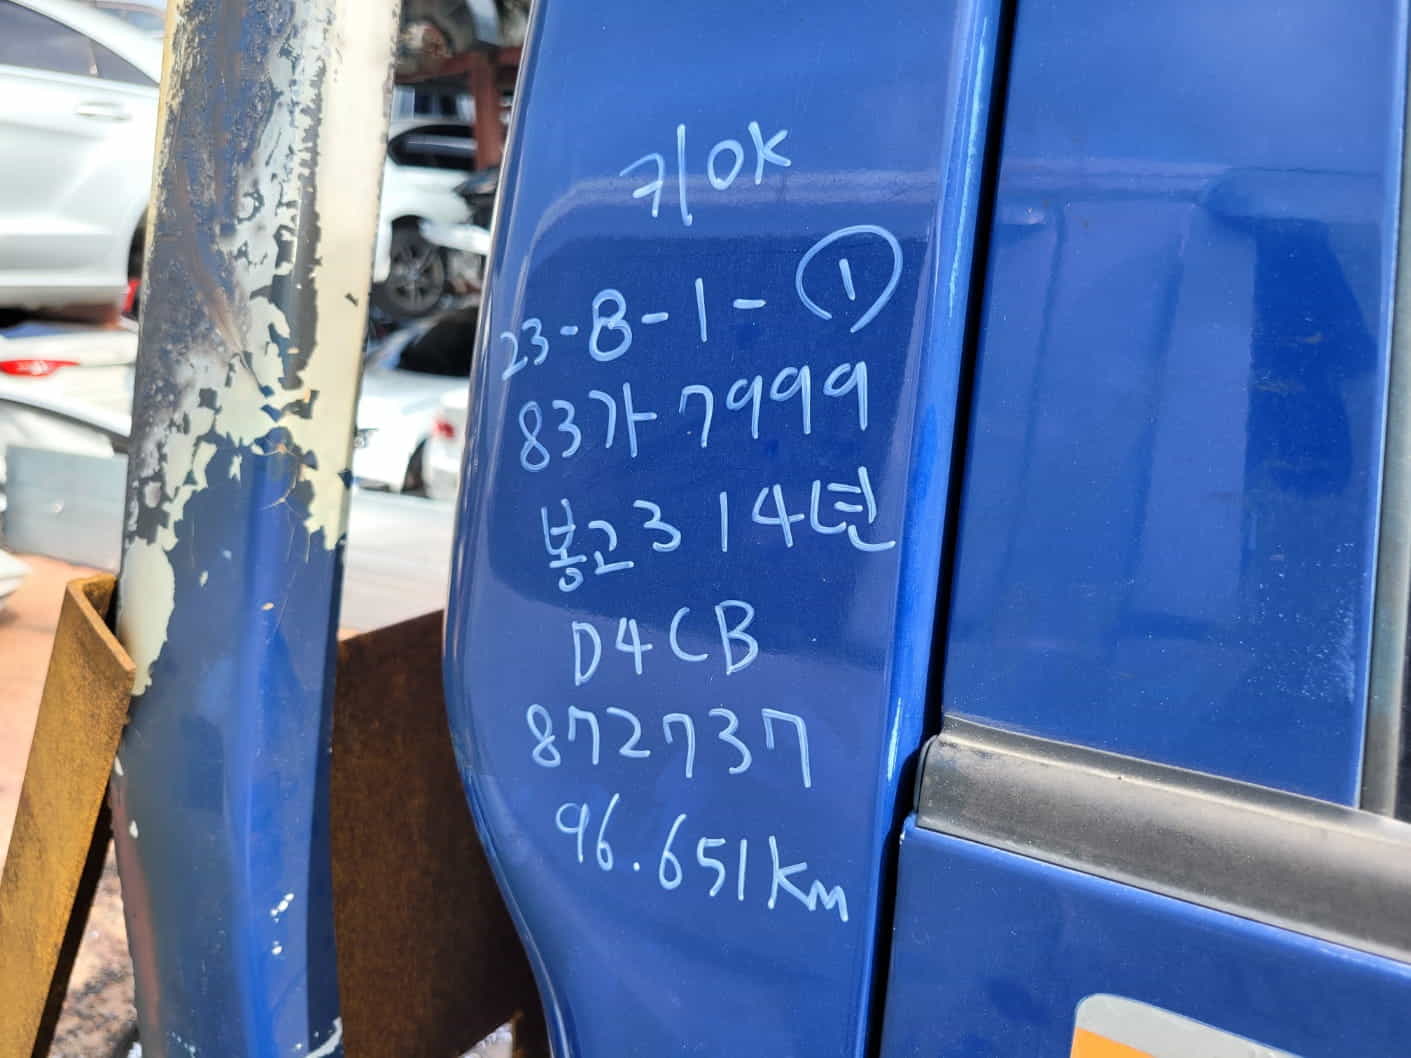 키OK
23-8-1-①
83가7999
봉고3 14년
D4CB
872737
96.651km